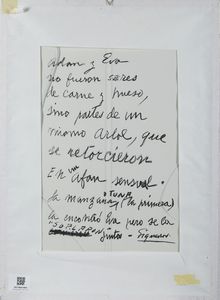 Adan y Eva
no fueron seres
de carne y hueso,
sino partes de un
mismo arbol, que
se retorcieron
En un afan sensual.
la manzana (la primera)
la encontró Eva pero se la
juntos - Figueroa